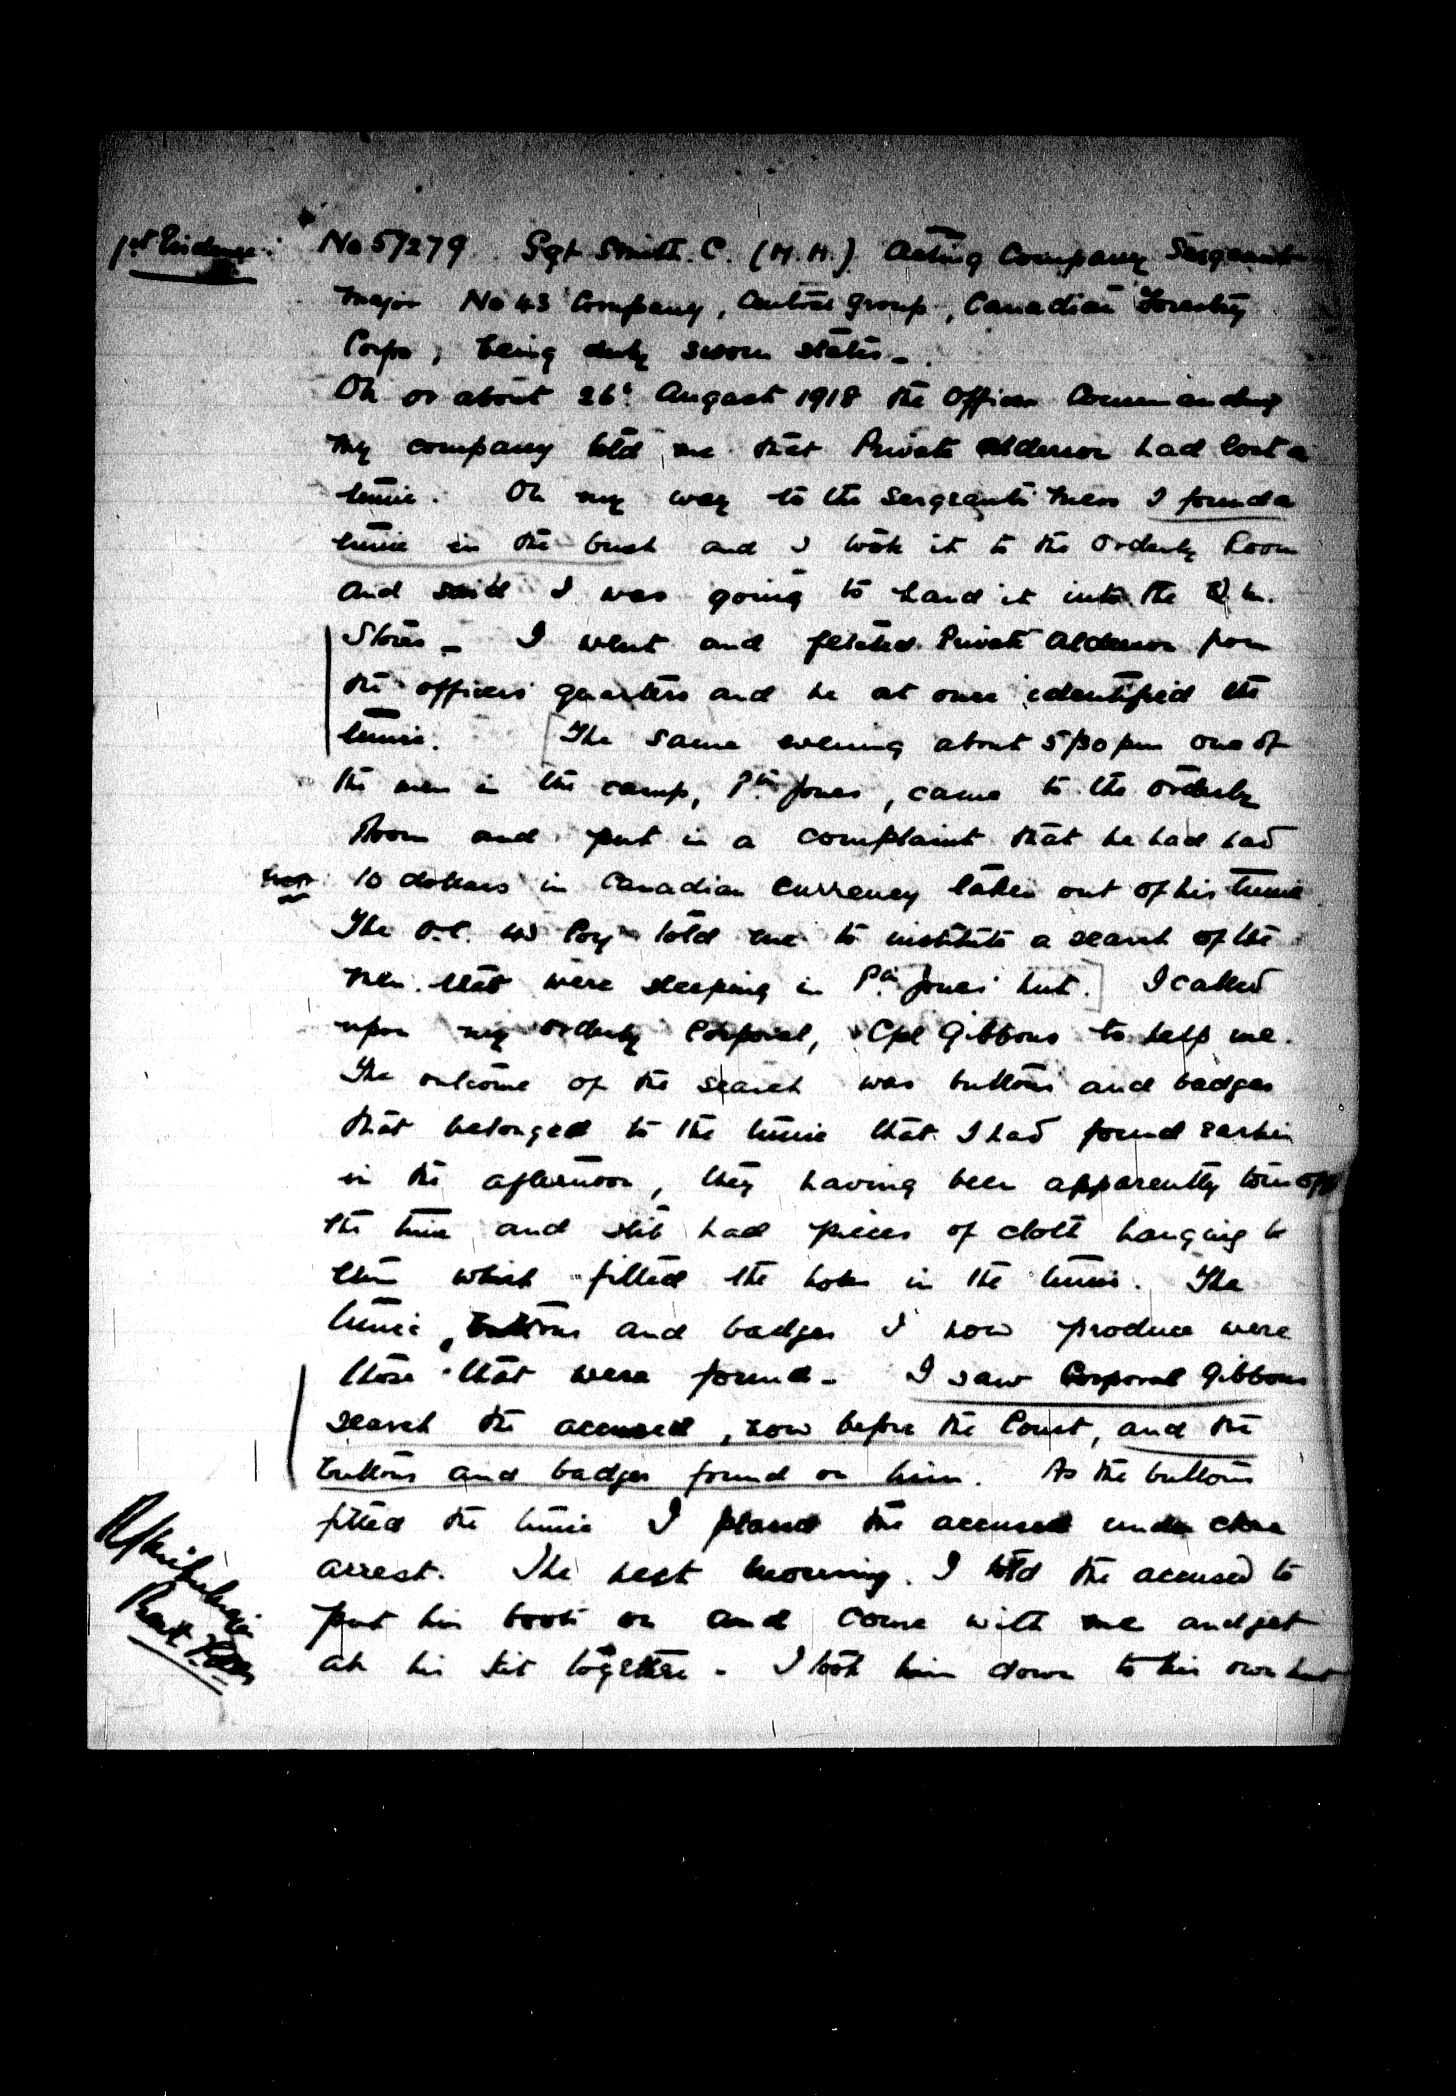 1st Evidence: No 57279 Sgt Smith. C. (H.H.) Acting Company Sergeant
Major No 43 Company, Central Group, Canadian Forestry
Corps, being duly sworn states -
On or about 26th August 1918 the Officer Commanding
my company told me that Private Alderson had lost a
tunic. On my way to the Sergeants Mess I found a
tunic in the bush and I took it to the Orderly Room
and said I was going to hand it into the Q.M.
Stores - I went and fetched Private Alderson from
the officers' quarters and he at once identified the
tunic. [The same evening about 5/30 pm one of
the men in the camp, Pte Jones, came to the Orderly
Room and put in a complaint that he had had
10 dollars in Canadian currency taken out of his tunic
The O.C. 43 Coy told me to institute a search of the
men that were sleeping in Pte Jones' hut.] I called
upon my orderly Corporal, Cpl Gibbons to help me.
The outcome of the search was buttons and badges
that belonged to the tunic that I had found earlier
in the afternoon, they having been apparently torn off
the tunic and still had pieces of cloth hanging to
them which fitted the holes in the tunic. The
tunic, buttons and badges I now produce were
those that were found - I saw Corporal Gibbons
search the accused, now before the Court, and the
buttons and badges found on him. As the buttons
fitted the tunic I placed the accused under close
arrest. The next morning. I told the accused to
put his boots on and come with me and get
all his kit together - I took him down to his own hut